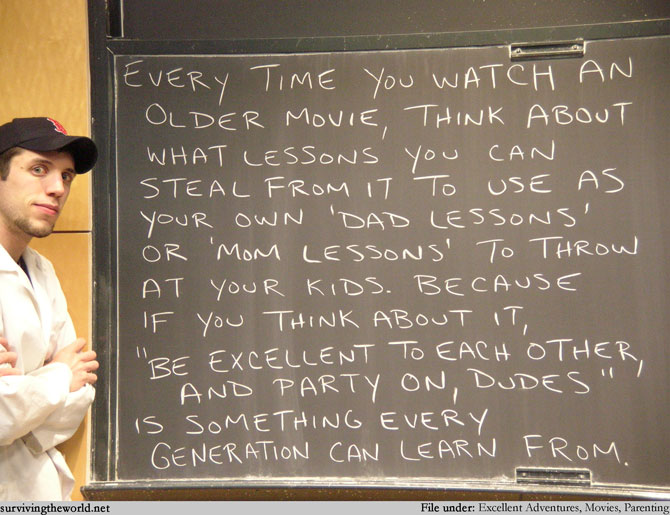 EVERY TIME YOU WATCH AN
OLDER MOVIE, THINK ABOUT
WHAT LESSONS YOU CAN
STEAL FROM IT TO USE AS
YOUR OWN 'DAD LESSONS'
OR 'MOM LESSONS' TO THROW
AT YOUR KIDS. BECAUSE
IF YOU THINK ABOUT IT,
"BE EXCELLENT TO EACH OTHER,
AND PARTY ON, DUDES",
IS SOMETHING EVERY
GENERATION CAN LEARN FROM.
survivingtheworld.net File under: Excellent Adventures, Movies, Parenting